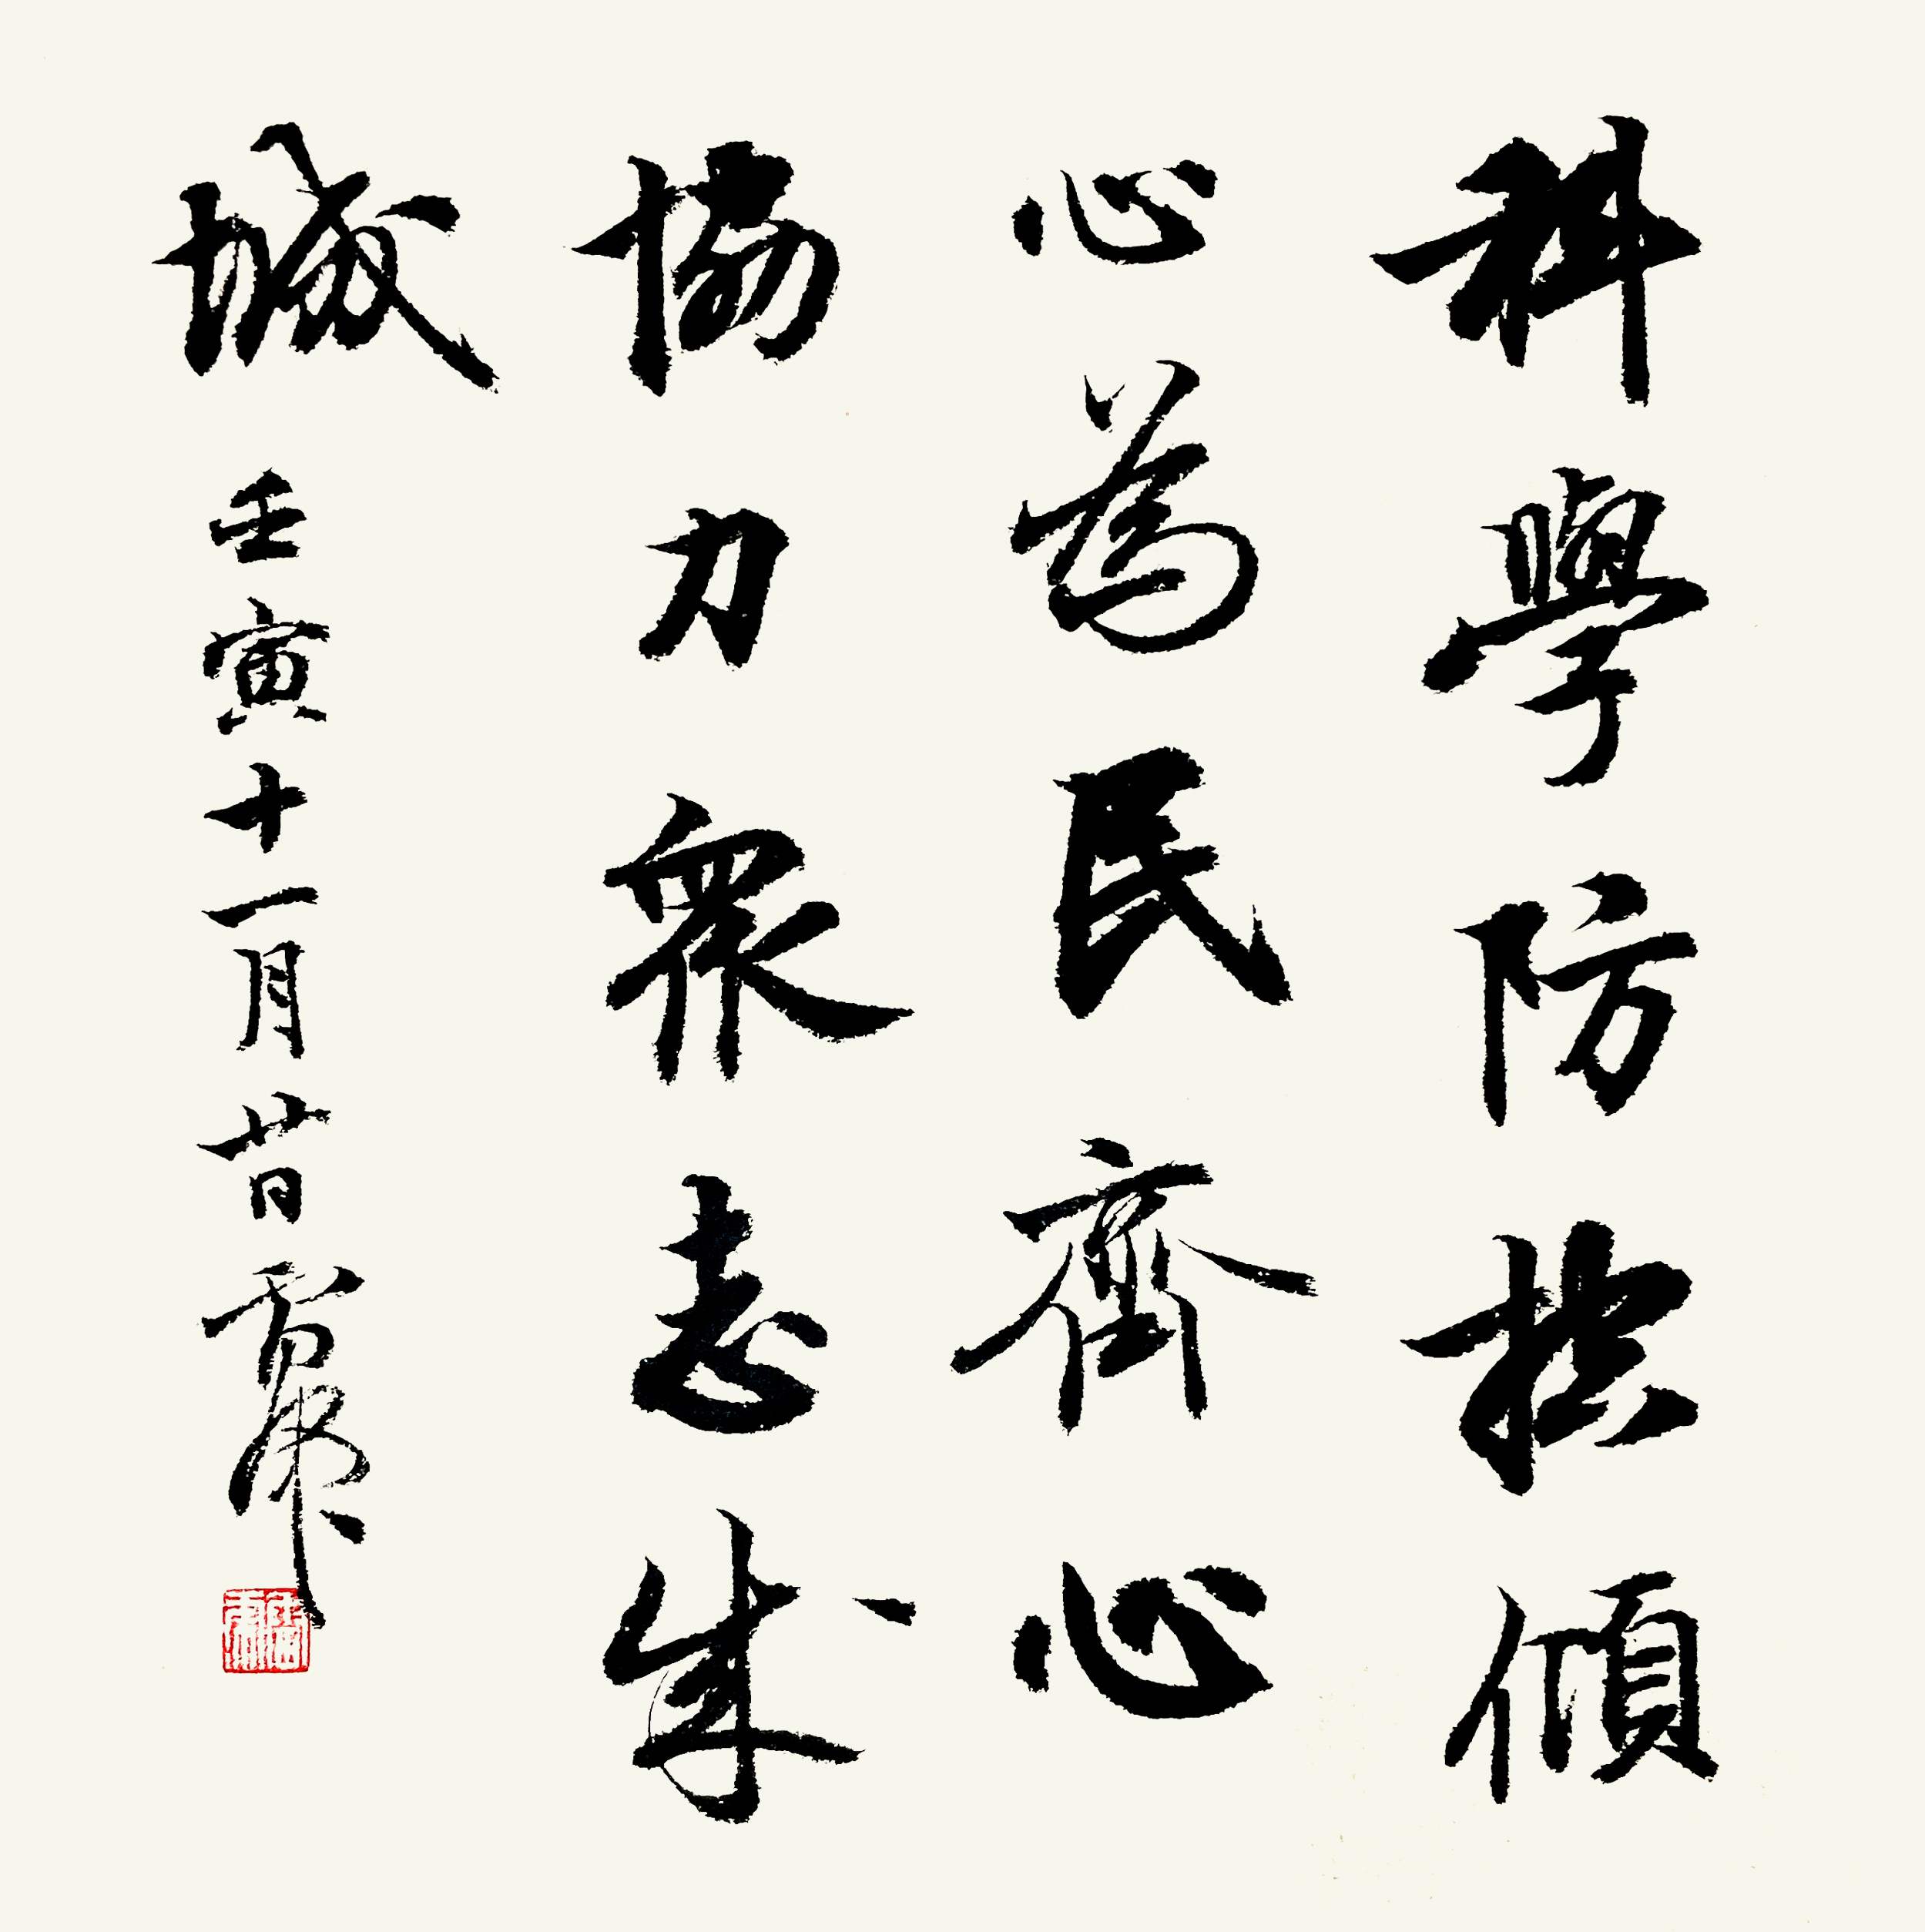 科學防控傾
心為民齊心
協力眾志成
城 壬寅十一月廿日